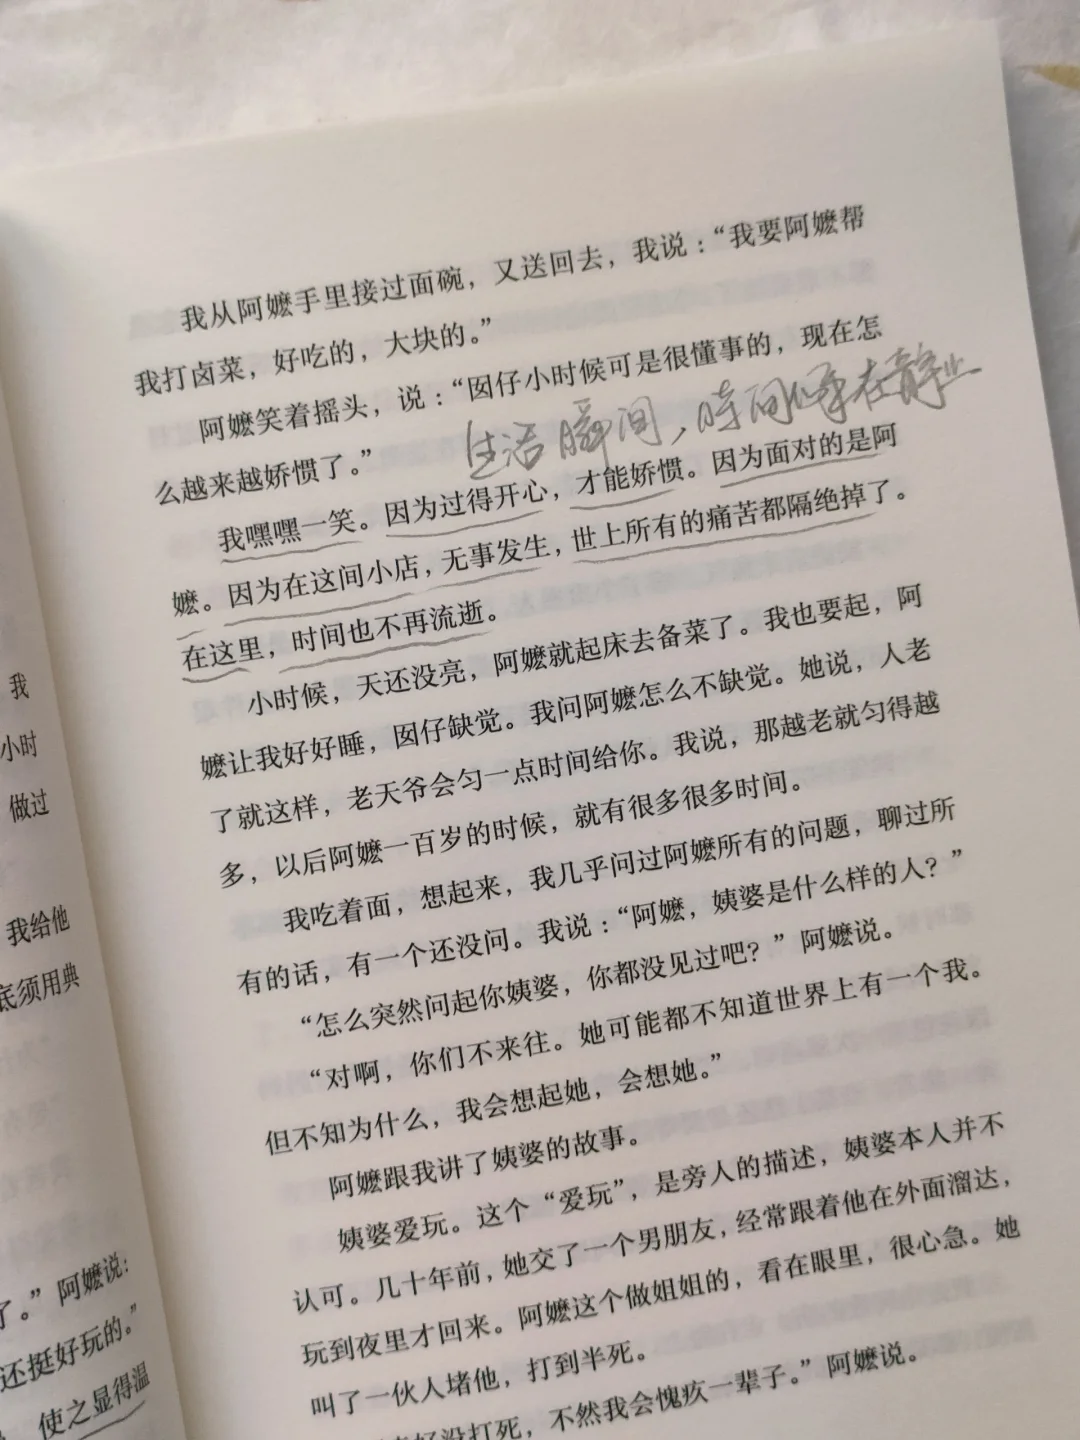 我从阿嬷手里接过面碗，又送回去，我说：“我要阿嬷帮
我打卤菜，好吃的，大块的。”
阿嬷笑着摇头，说：“囡仔小时候可是很懂事的，现在怎
么越来越娇惯了。”
生活瞬间，時间停在静止
我嘿嘿一笑。因为过得开心，才能娇惯。因为面对的是阿
嬷。因为在这间小店，无事发生，世上所有的痛苦都隔绝掉了。
在这里，时间也不再流逝。
小时候，天还没亮，阿嬷就起床去备菜了。我也要起，阿
嬷让我好好睡，囡仔缺觉。我问阿嬷怎么不缺觉。她说，人老
了就这样，老天爷会匀一点时间给你。我说，那越老就匀得越
多，以后阿嬷一百岁的时候，就有很多很多时间。
我吃着面，想起来，我几乎问过阿嬷所有的问题，聊过所
有的话，有一个还没问。我说：“阿嬷，姨婆是什么样的人？”
“怎么突然问起你姨婆，你都没见过吧？”阿嬷说。
“对啊，你们不来往。她可能都不知道世界上有一个我。
但不知为什么，我会想起她，会想她。”
阿嬷跟我讲了姨婆的故事。
姨婆爱玩。这个“爱玩”，是旁人的描述，姨婆本人并不
认可。几十年前，她交了一个男朋友，经常跟着他在外面溜达，
玩到夜里才回来。阿嬷这个做姐姐的，看在眼里，很心急。她
叫了一伙人堵他，打到半死。
好没打死，不然我会愧疚一辈子。”阿嬷说。
我
小时
做过
我给他
底须用典
了。”阿嬷说：
还挺好玩的。”
使之显得温